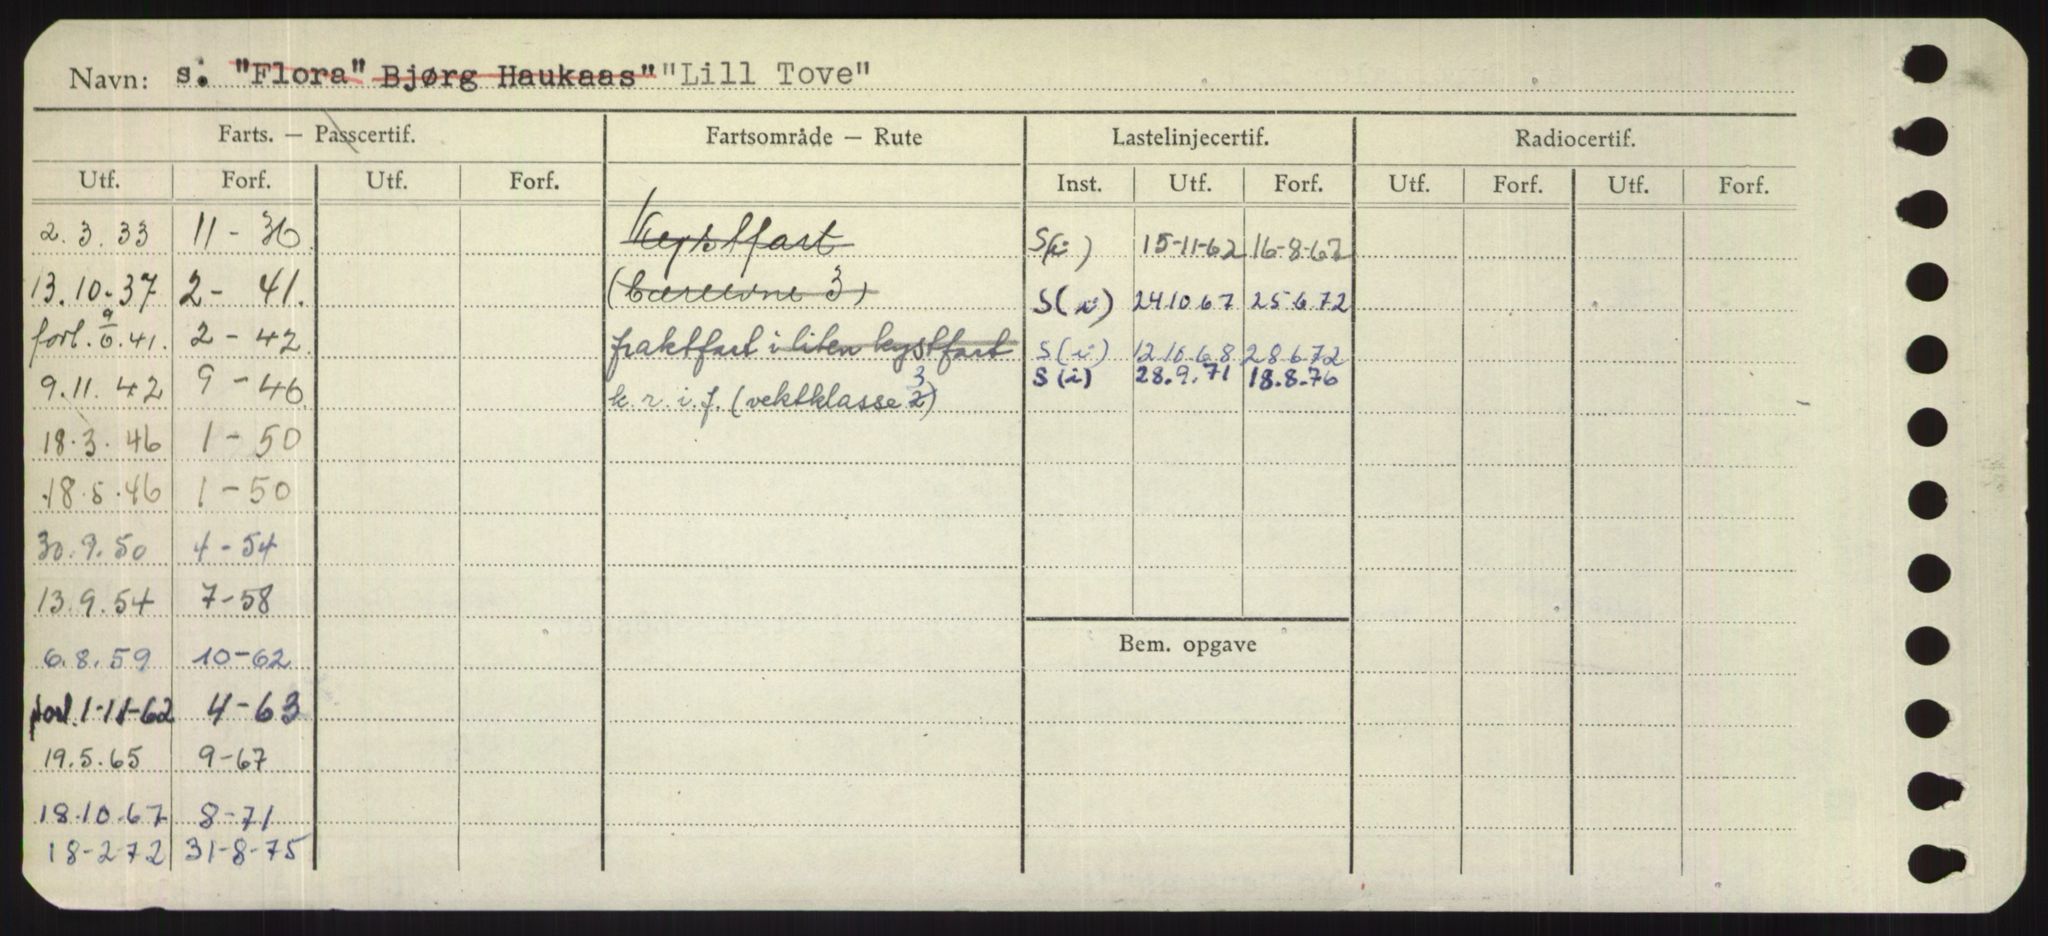 Navn: s. "Flora" Bjørg Haukaas" "Lill Tove"
Farts. — Passcertif. Fartsområde — Rute Lastelinjecertif. Radiocertif.
Utf. Forf. Utf. Forf. Inst. Utf. Forf. Utf. Forf. Utf. Forf.
2.3.33 11-36 Kystfart S(i) 15-11-62 16-8-67
13.10.37 2-41. (bæreevne 3) S(i) 24.10.67 25.6.72
forl. 9/6.41. 2-42 fraktfart i liten kystfart S(i) 12.10.68 28.6.72
9.11.42 9-46 k.r.i.f. (vektklasse 2) 3 S(i) 28.9.71 18.8.76
18.3.46 1-50
18.5.46 1-50
30.9.50 4-54
13.9.54 7-58
6.8.59 10-62 Bem. opgave
forl. 1-11-62 4-63
19.5.65 9-67
18.10.67 8-71
18-2-72 31-8-75